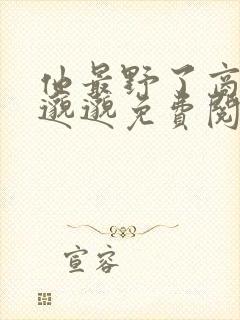 他最野了高
邈邈免費閱
宣容